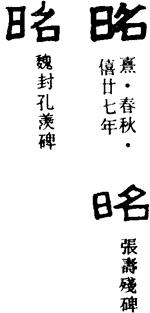 昭
熹·春秋·
僖廿七年
昭
張壽殘碑
昭
魏封孔羨碑